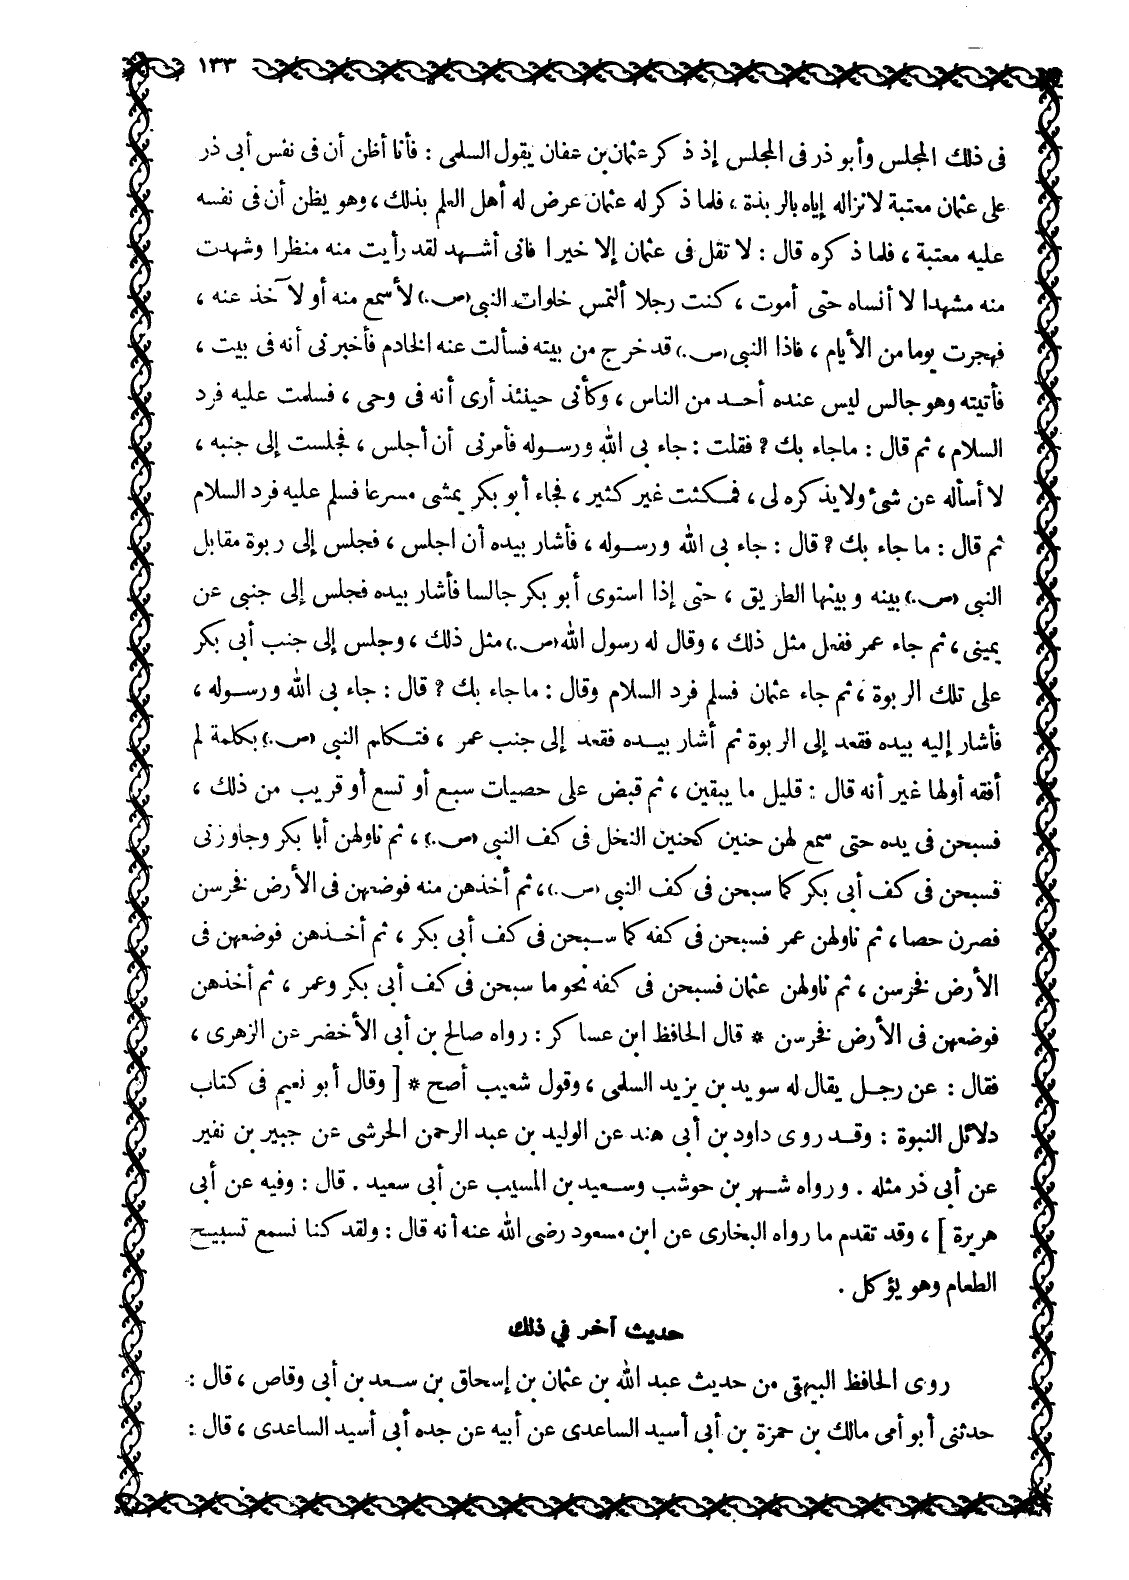 ١٣٣
فى ذلك المجلس وأبو ذر فى المجلس إذ ذكر عثمان بن عفان يقول السلمى : فأنا أظن أن فى نفس أبى ذر
على عثمان معتبة لانزاله إياه بالربذة ، فلما ذكر له عثمان عرض له أهل العلم بذلك ، وهو يظن أن فى نفسه
عليه معتبة ، فلما ذكره قال : لا تقل فى عثمان إلا خيرا فانى أشهد لقد رأيت منه منظرا وشهدت
منه مشهدا لا أنساه حتى أموت ، كنت رجلا ألتمس خلوات النبى (ص.) لأسمع منه أو لآخذ عنه ،
فهجرت يوما من الأيام ، فاذا النبى (ص.) قد خرج من بيته فسألت عنه الخادم فأخبرنى أنه فى بيت ،
فأتيته وهو جالس ليس عنده أحد من الناس ، وكأنى حينئذ أرى أنه فى وحى ، فسلمت عليه فرد
السلام ، ثم قال : ماجاء بك ؟ فقلت : جاء بى الله ورسوله فأمرنى أن أجلس ، فجلست إلى جنبه ،
لا أسأله عن شئ ولا يذكره لى ، فمكثت غير كثير ، فجاء أبو بكر يمشى مسرعا فسلم عليه فرد السلام
ثم قال : ما جاء بك ؟ قال : جاء بى الله ورسوله ، فأشار بيده أن اجلس ، فجلس إلى ربوة مقابل
النبى (ص.) بينه وبينها الطريق ، حتى إذا استوى أبو بكر جالسا فأشار بيده فجلس إلى جنبى عن
يمينى ، ثم جاء عمر ففعل مثل ذلك ، وقال له رسول الله (ص.) مثل ذلك ، وجلس إلى جنب أبى بكر
على تلك الربوة ، ثم جاء عثمان فسلم فرد السلام وقال : ما جاء بك ؟ قال : جاء بى الله ورسوله ،
فأشار إليه بيده فقعد إلى الربوة ثم أشار بيده فقعد إلى جنب عمر ، فتكلم النبى (ص.) بكلمة لم
أفقه أولها غير أنه قال : قليل ما يبقين ، ثم قبض على حصيات سبع أو تسع أو قريب من ذلك ،
فسبحن فى يده حتى سمع لهن حنين كحنين النخل فى كف النبى (ص.) ، ثم ناولهن أبا بكر وجاوزنى
فسبحن فى كف أبى بكر كما سبحن فى كف النبى (ص.) ، ثم أخذهن منه فوضعهن فى الأرض فخرسن
فصرن حصا ، ثم ناولهن عمر فسبحن فى كفه كما سبحن فى كف أبى بكر ، ثم أخذهن فوضعهن فى
الأرض فخرسن ، ثم ناولهن عثمان فسبحن فى كفه نحو ما سبحن فى كف أبى بكر وعمر ، ثم أخذهن
فوضعهن فى الأرض فخرسن * قال الحافظ ابن عساكر : رواه صالح بن أبى الأخضر عن الزهرى ،
فقال : عن رجل يقال له سويد بن يزيد السلمى ، وقول شعيب أصح * [ وقال أبو نعيم فى كتاب
دلائل النبوة : وقد روى داود بن أبى هند عن الوليد بن عبد الرحمن الحرشى عن جبير بن نفير
عن أبى ذر مثله . ورواه شهر بن حوشب وسعيد بن المسيب عن أبى سعيد . قال : وفيه عن أبى
هريرة ] ، وقد تقدم ما رواه البخارى عن ابن مسعود رضى الله عنه أنه قال : ولقد كنا نسمع تسبيح
الطعام وهو يؤكل .
حديث آخر في ذلك
روى الحافظ البيهقى من حديث عبد الله بن عثمان بن إسحاق بن سعد بن أبى وقاص ، قال :
حدثنى أبو أمى مالك بن حمزة بن أبى أسيد الساعدى عن أبيه عن جده أبى أسيد الساعدى ، قال :